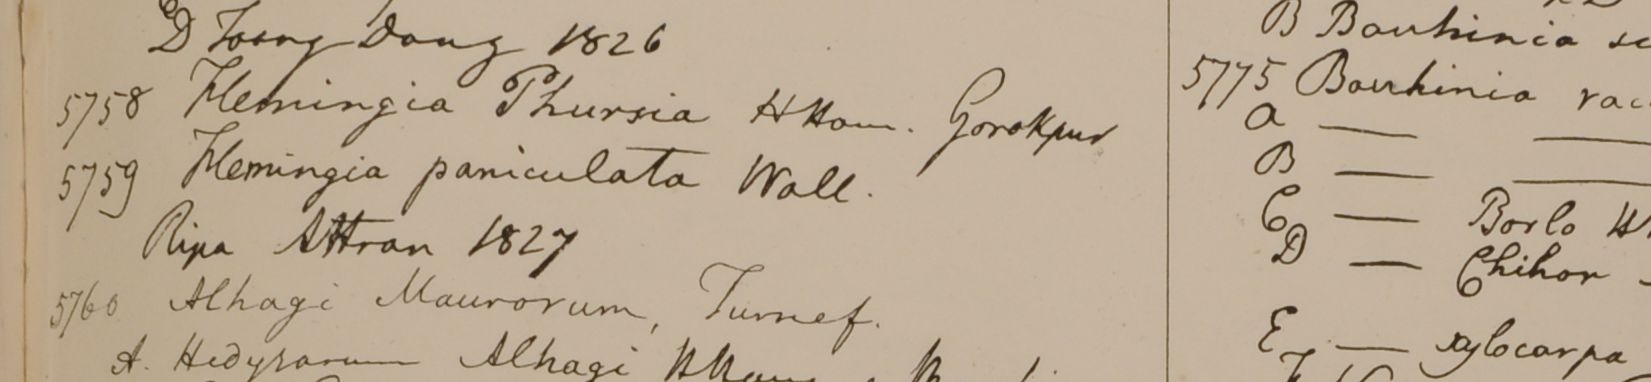 D Toong Dong 1826
5758 Flemingia Phursia HHam. Gorakpur
5759 Flemingia paniculata Wall.
Ripa Attran 1827
5760 Alhagi Maurorum, Turnef.
A. Hedysarum Alhagi
B Bauhinia
5775 Bauhinia
a — —
B — —
C — Borlo
D — Chihor
E — xylocarpa